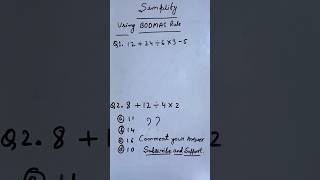 Simplify
Using BODMAS Rule
Q1. 12 + 24 ÷ 6 × 3 - 5
Q2. 8 + 12 ÷ 4 × 2
ⓐ 11 ??
ⓑ 14
ⓒ 16 Comment your Answer
ⓓ 10 Subscribe and Support.